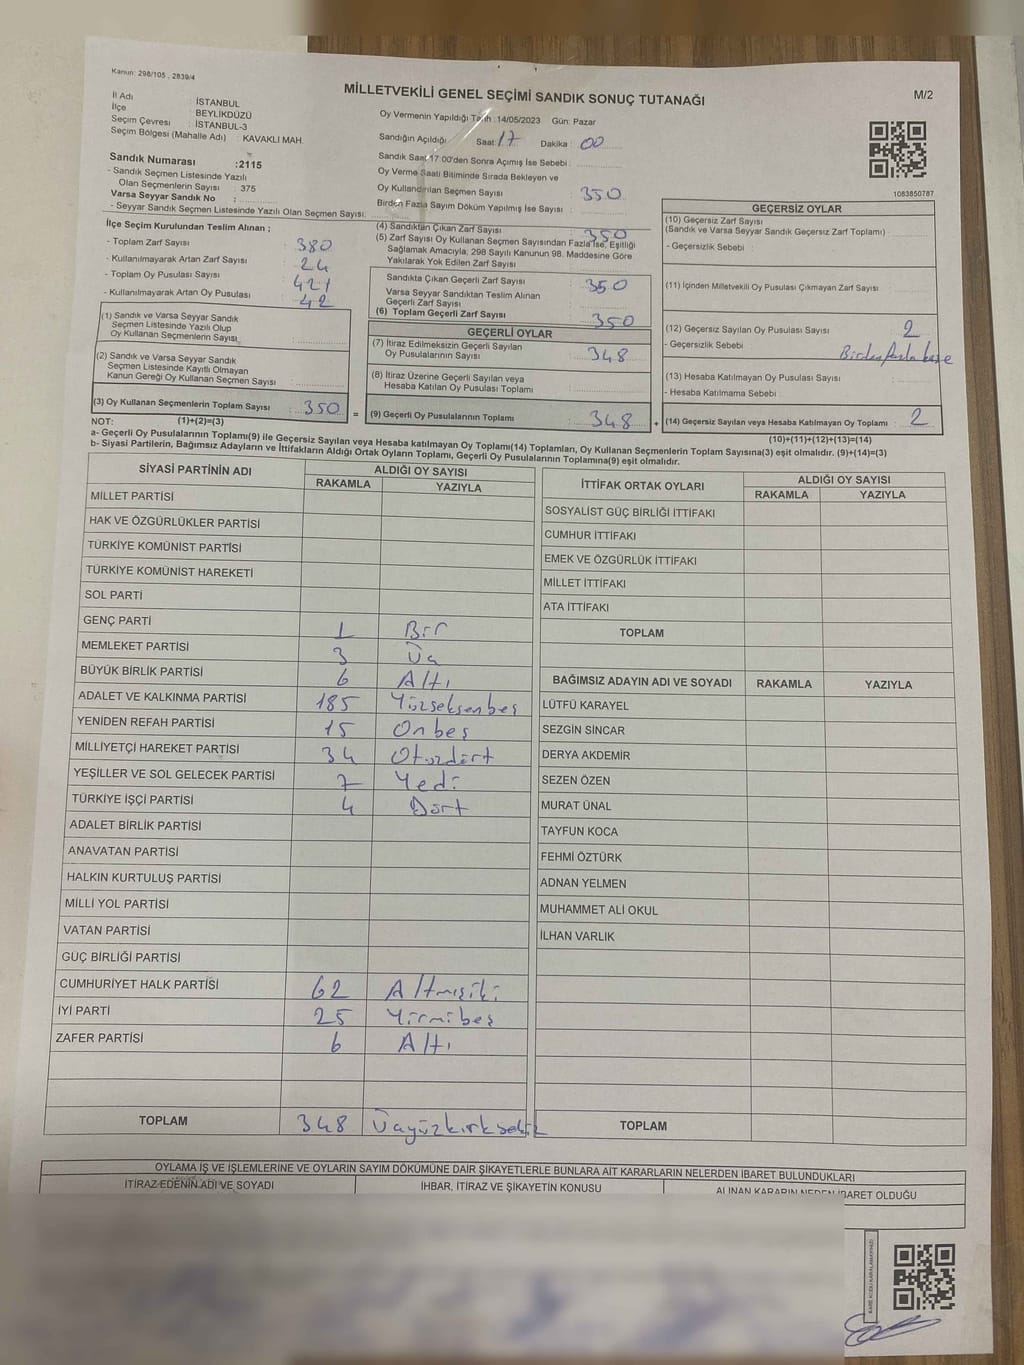 Kanun: 298/105 , 2839/4
MİLLETVEKİLİ GENEL SEÇİMİ SANDIK SONUÇ TUTANAĞI
M/2
İl Adı : İSTANBUL
İlçe : BEYLİKDÜZÜ
Seçim Çevresi : İSTANBUL-3
Seçim Bölgesi (Mahalle Adı) : KAVAKLI MAH.
Sandık Numarası :2115
- Sandık Seçmen Listesinde Yazılı
Olan Seçmenlerin Sayısı : 375
Varsa Seyyar Sandık No :
- Seyyar Sandık Seçmen Listesinde Yazılı Olan Seçmen Sayısı:
Oy Vermenin Yapıldığı Tarih :14/05/2023 Gün: Pazar
Sandığın Açıldığı Saat: 17 Dakika : 00
Sandık Saat 17:00'den Sonra Açımış İse Sebebi :
Oy Verme Saati Bitiminde Sırada Bekleyen ve
Oy Kullandırılan Seçmen Sayısı : 350
Birden Fazla Sayım Döküm Yapılmış İse Sayısı :
1083850787
İlçe Seçim Kurulundan Teslim Alınan ;
- Toplam Zarf Sayısı : 380
- Kullanılmayarak Artan Zarf Sayısı : 24
- Toplam Oy Pusulası Sayısı : 421
- Kullanılmayarak Artan Oy Pusulası : 42
(1) Sandık ve Varsa Seyyar Sandık
Seçmen Listesinde Yazılı Olup
Oy Kullanan Seçmenlerin Sayısı
(2) Sandık ve Varsa Seyyar Sandık
Seçmen Listesinde Kayıtlı Olmayan
Kanun Gereği Oy Kullanan Seçmen Sayısı :
(3) Oy Kullanan Seçmenlerin Toplam Sayısı : 350 =
(4) Sandıktan Çıkan Zarf Sayısı : 350
(5) Zarf Sayısı Oy Kullanan Seçmen Sayısından Fazla İse, Eşitliği
Sağlamak Amacıyla, 298 Sayılı Kanunun 98. Maddesine Göre
Yakılarak Yok Edilen Zarf Sayısı :
Sandıkta Çıkan Geçerli Zarf Sayısı : 350
Varsa Seyyar Sandıktan Teslim Alınan
Geçerli Zarf Sayısı :
(6) Toplam Geçerli Zarf Sayısı : 350
GEÇERLİ OYLAR
(7) İtiraz Edilmeksizin Geçerli Sayılan
Oy Pusulalarının Sayısı : 348
(8) İtiraz Üzerine Geçerli Sayılan veya
Hesaba Katılan Oy Pusulası Toplamı :
(9) Geçerli Oy Pusulalarının Toplamı : 348 +
GEÇERSİZ OYLAR
(10) Geçersiz Zarf Sayısı
(Sandık ve Varsa Seyyar Sandık Geçersiz Zarf Toplamı) :
- Geçersizlik Sebebi :
(11) İçinden Milletvekili Oy Pusulası Çıkmayan Zarf Sayısı :
(12) Geçersiz Sayılan Oy Pusulası Sayısı : 2
- Geçersizlik Sebebi :
(13) Hesaba Katılmayan Oy Pusulası Sayısı :
- Hesaba Katılmama Sebebi :
(14) Geçersiz Sayılan veya Hesaba Katılmayan Oy Toplamı : 2
NOT: (1)+(2)=(3)
(10)+(11)+(12)+(13)=(14)
a- Geçerli Oy Pusulalarının Toplamı(9) ile Geçersiz Sayılan veya Hesaba katılmayan Oy Toplamı(14) Toplamları, Oy Kullanan Seçmenlerin Toplam Sayısına(3) eşit olmalıdır. (9)+(14)=(3)
b- Siyasi Partilerin, Bağımsız Adayların ve İttifakların Aldığı Ortak Oyların Toplamı, Geçerli Oy Pusulalarının Toplamına(9) eşit olmalıdır.
SİYASİ PARTİNİN ADI ALDIĞI OY SAYISI
RAKAMLA YAZIYLA
MİLLET PARTİSİ
HAK VE ÖZGÜRLÜKLER PARTİSİ
TÜRKİYE KOMÜNİST PARTİSİ
TÜRKİYE KOMÜNİST HAREKETİ
SOL PARTİ
GENÇ PARTİ 1 Bir
MEMLEKET PARTİSİ 3 Üç
BÜYÜK BİRLİK PARTİSİ 6 Altı
ADALET VE KALKINMA PARTİSİ 185 Yüzseksenbeş
YENİDEN REFAH PARTİSİ 15 Onbeş
MİLLİYETÇİ HAREKET PARTİSİ 34 Otuzdört
YEŞİLLER VE SOL GELECEK PARTİSİ 7 Yedi
TÜRKİYE İŞÇİ PARTİSİ 4 Dört
ADALET BİRLİK PARTİSİ
ANAVATAN PARTİSİ
HALKIN KURTULUŞ PARTİSİ
MİLLİ YOL PARTİSİ
VATAN PARTİSİ
GÜÇ BİRLİĞİ PARTİSİ
CUMHURİYET HALK PARTİSİ 62 Altmışiki
İYİ PARTİ 25 Yirmibeş
ZAFER PARTİSİ 6 Altı
TOPLAM 348 Üçyüzkırksekiz
İTTİFAK ORTAK OYLARI ALDIĞI OY SAYISI
RAKAMLA YAZIYLA
SOSYALİST GÜÇ BİRLİĞİ İTTİFAKI
CUMHUR İTTİFAKI
EMEK VE ÖZGÜRLÜK İTTİFAKI
MİLLET İTTİFAKI
ATA İTTİFAKI
TOPLAM
BAĞIMSIZ ADAYIN ADI VE SOYADI RAKAMLA YAZIYLA
LÜTFÜ KARAYEL
SEZGİN SİNCAR
DERYA AKDEMİR
SEZEN ÖZEN
MURAT ÜNAL
TAYFUN KOCA
FEHMİ ÖZTÜRK
ADNAN YELMEN
MUHAMMET ALİ OKUL
İLHAN VARLIK
TOPLAM
OYLAMA İŞ VE İŞLEMLERİNE VE OYLARIN SAYIM DÖKÜMÜNE DAİR ŞİKAYETLERLE BUNLARA AİT KARARLARIN NELERDEN İBARET BULUNDUKLARI
İTİRAZ EDENİN ADI VE SOYADI İHBAR, İTİRAZ VE ŞİKAYETİN KONUSU ALINAN KARARIN NEDEN İBARET OLDUĞU